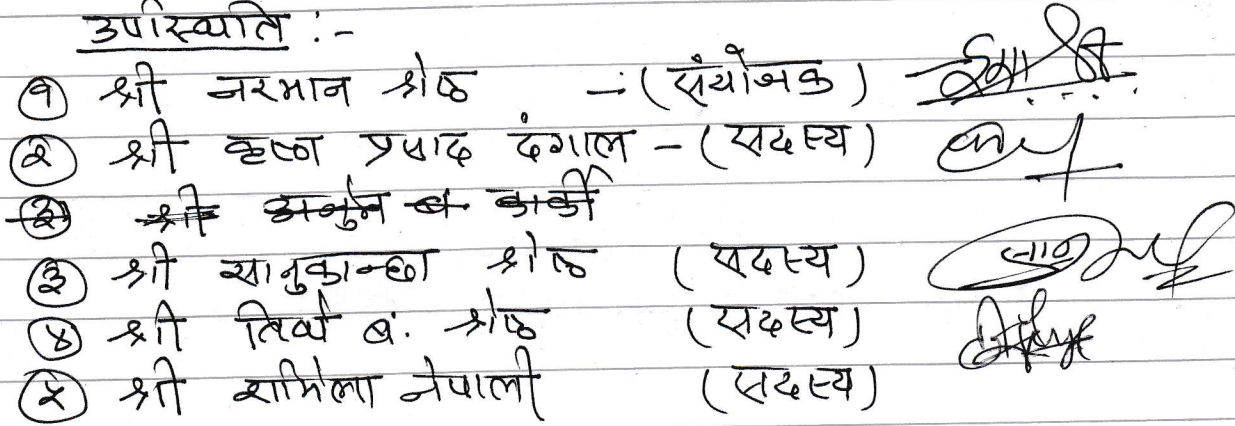 उपस्थिति :-
१ श्री नरमान श्रेष्ठ -: (संयोजक)
२ श्री कृष्ण प्रसाद दंगाल - (सदस्य)
३ श्री अर्जुन ब कार्की
३ श्री सानुकान्छा श्रेष्ठ (सदस्य)
४ श्री तिर्थ बं. श्रेष्ठ (सदस्य)
५ श्री शर्मिला नेपाली (सदस्य)